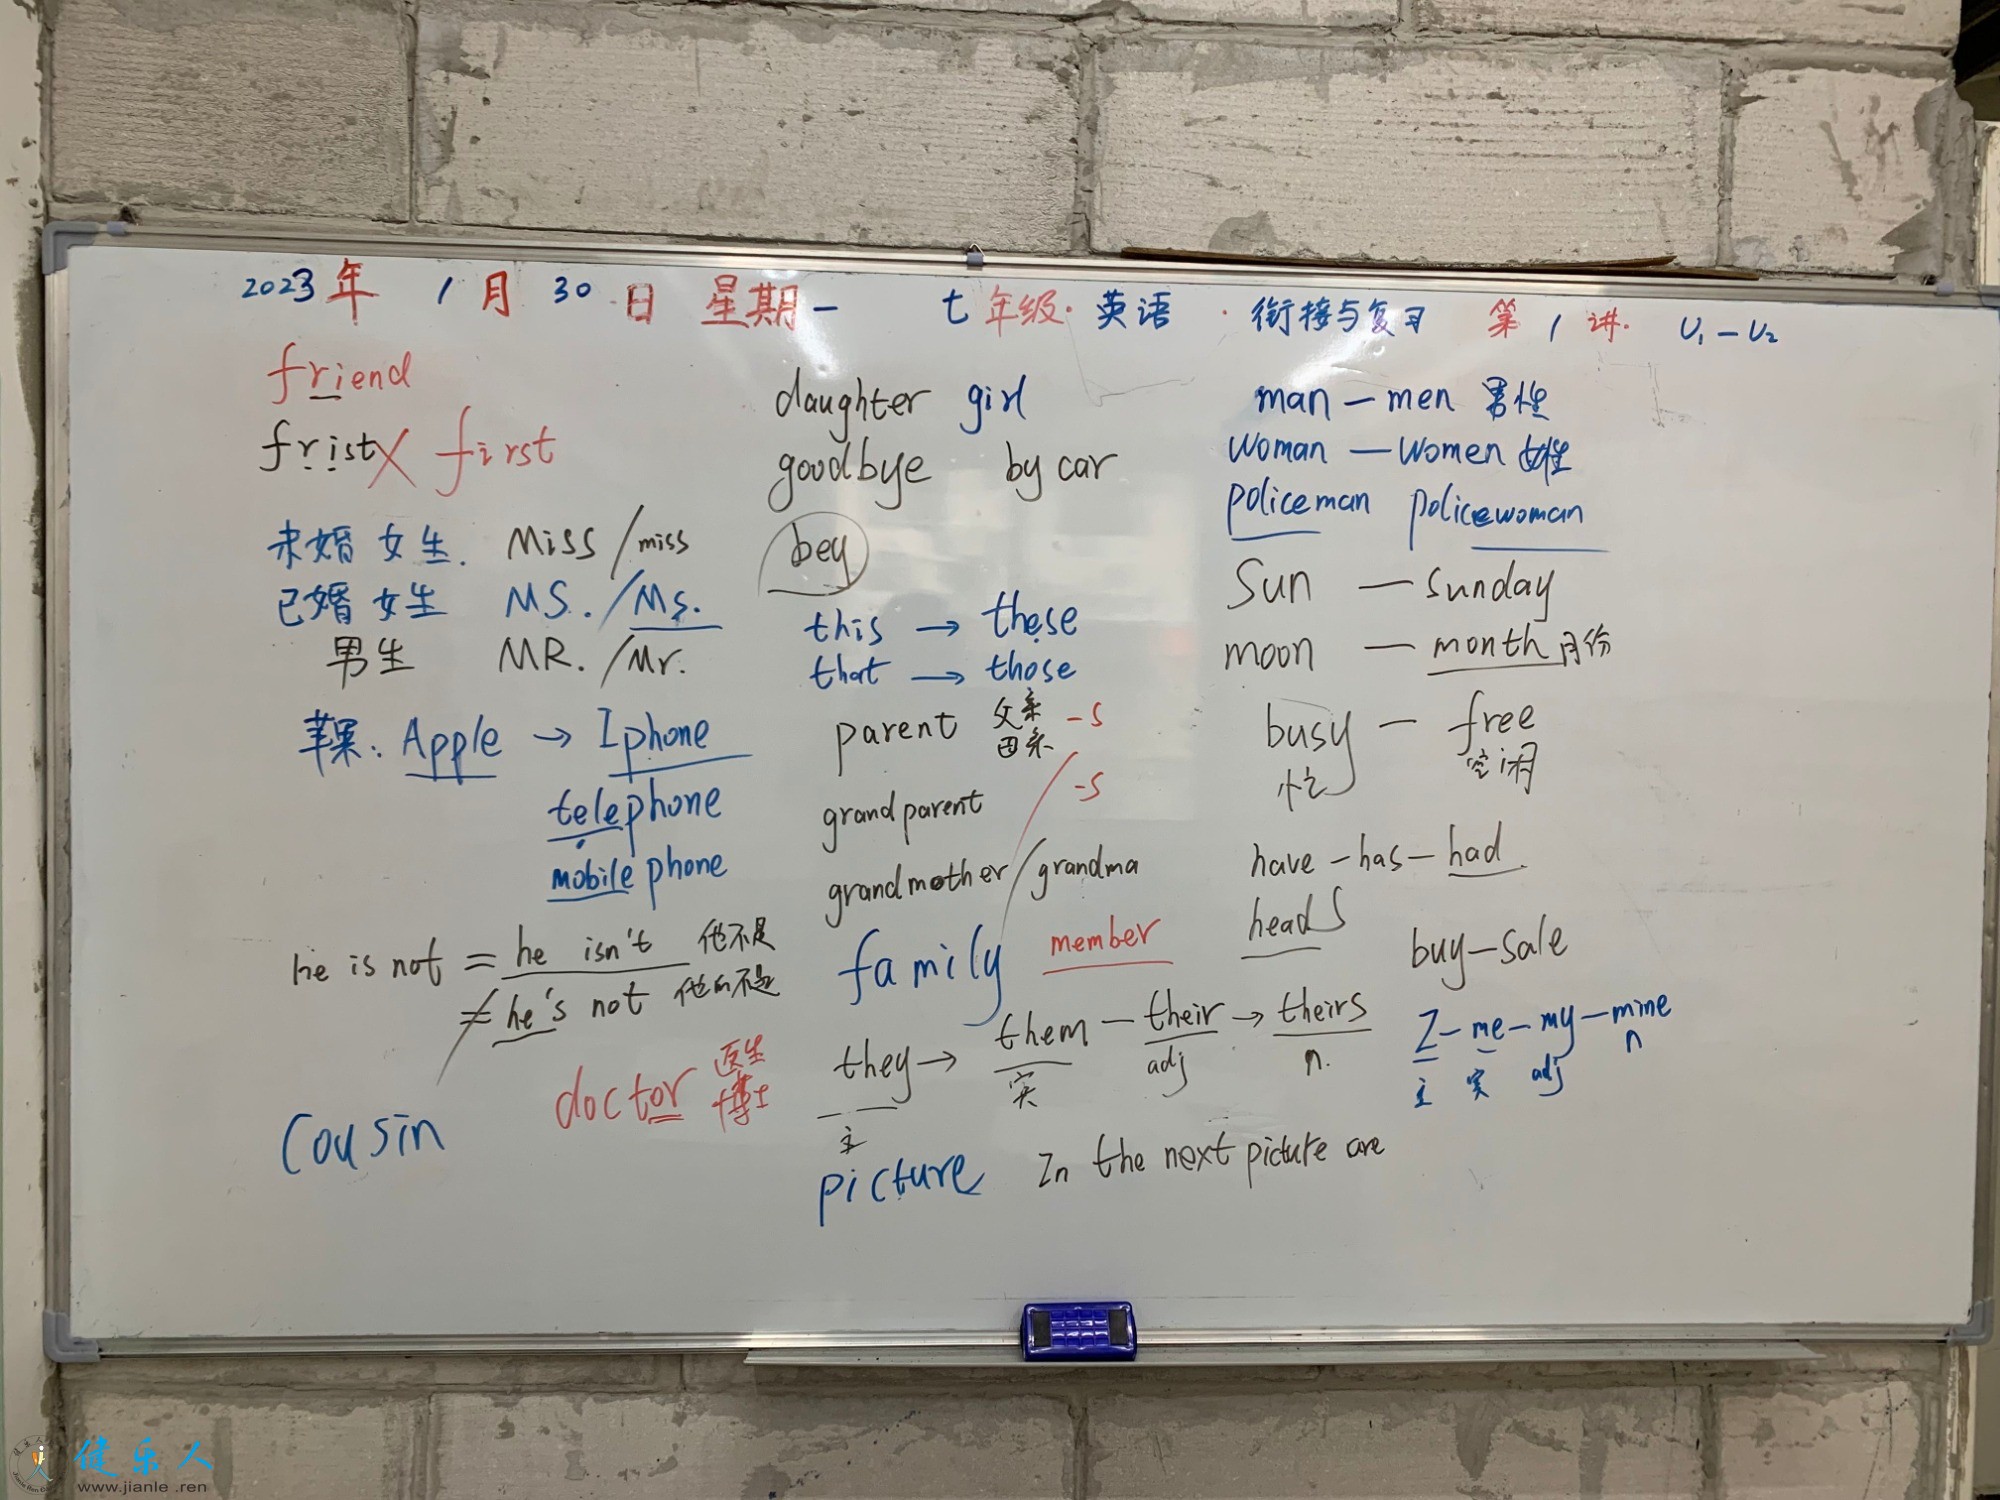 2023年 1月 30日 星期一 七年级·英语 · 衔接与复习 第1讲. U₁-U₂
friend
frist X first
未婚女生. Miss/miss
已婚女生 MS./Ms.
男生 MR./Mr.
苹果: Apple → Iphone
telephone
mobile phone
he is not = he isn't 他不是
≠ he's not 他的不是
doctor 医生
博士
Cousin
daughter girl
goodbye by car
bey
this → these
that → those
parent 父亲 -s
母亲
grandparent -s
grandmother/grandma
family member
they → them - their → theirs
主 宾 adj n.
picture In the next picture are
man - men 男性
woman - women 女性
policeman policewoman
Sun - Sunday
moon - month 月份
busy - free
忙 空闲
have - has - had.
heads
buy - sale
I - me - my - mine
主 宾 adj n
健乐人
www.jianle.ren